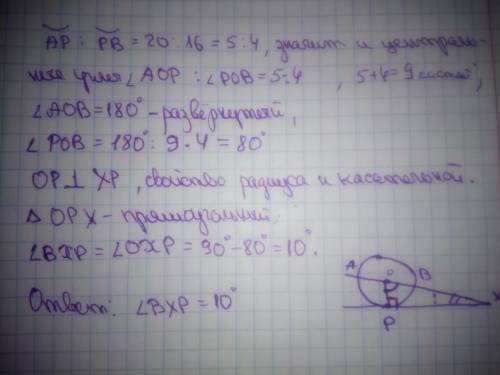 AP : PB = 20 : 16 = 5 : 4, значит и централь-
ные углы ∠AOP : ∠POB = 5:4, 5+4=9 частей,
∠AOB = 180° - развёрнутый,
∠POB = 180° : 9 · 4 = 80°
OP ⊥ XP, свойство радиуса и касательной.
△ OPX - прямоугольный.
∠BXP = ∠OXP = 90° - 80° = 10°.
Ответ: ∠BXP = 10°
A O B
P X